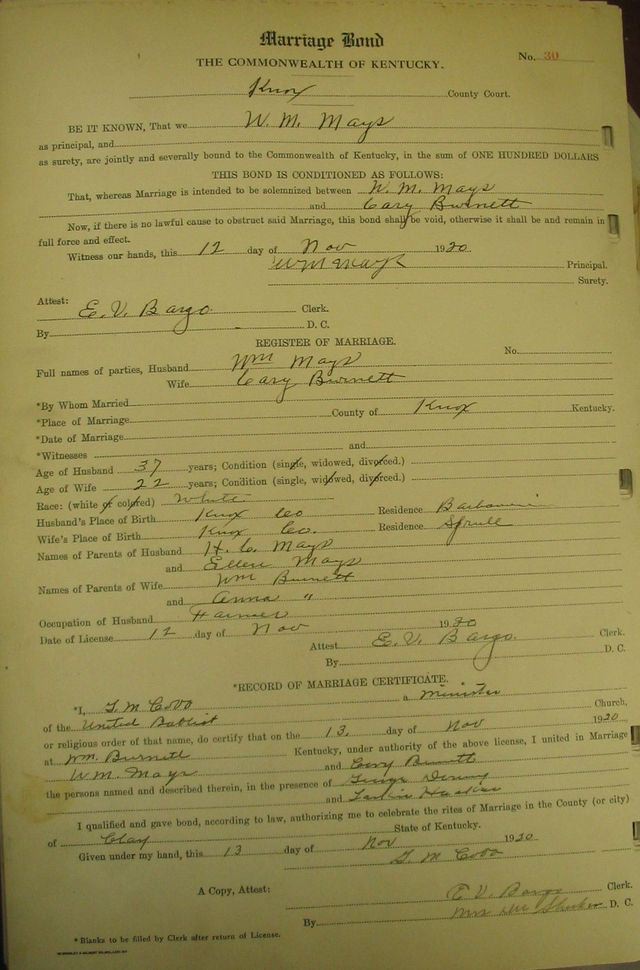 Marriage Bond
No. 30
THE COMMONWEALTH OF KENTUCKY.
Knox County Court.
BE IT KNOWN, That we W. M. Mays
as principal, and
as surety, are jointly and severally bound to the Commonwealth of Kentucky, in the sum of ONE HUNDRED DOLLARS
THIS BOND IS CONDITIONED AS FOLLOWS:
That, whereas Marriage is intended to be solemnized between W. M. Mays
and Cary Burnett
Now, if there is no lawful cause to obstruct said Marriage, this bond shall be void, otherwise it shall be and remain in
full force and effect.
Witness our hands, this 12 day of Nov 1920
W M Mays Principal.
Surety.
Attest:
E. V. Bargo Clerk.
By D. C.
REGISTER OF MARRIAGE.
No.
Full names of parties, Husband Wm Mays
Wife Cary Burnett
*By Whom Married
*Place of Marriage County of Knox Kentucky.
*Date of Marriage
*Witnesses and
Age of Husband 37 years; Condition (single, widowed, divorced.)
Age of Wife 22 years; Condition (single, widowed, divorced.)
Race: (white or colored) White
Husband's Place of Birth Knox Co Residence
Wife's Place of Birth Knox Co. Residence Sprule
Names of Parents of Husband H. C. Mays
and Ellen Mays
Names of Parents of Wife Wm Burnett
and Anna "
Occupation of Husband Farmer
Date of License 12 day of Nov 1920
Attest E. V. Bargo Clerk.
By D. C.
*RECORD OF MARRIAGE CERTIFICATE.
*I, T. M. Cobb a Minister
of the United Baptist Church,
or religious order of that name, do certify that on the 13. day of Nov 1920
at Wm. Burnett Kentucky, under authority of the above license, I united in Marriage
W. M. Mays and Cary Burnett
the persons named and described therein, in the presence of George
and
I qualified and gave bond, according to law, authorizing me to celebrate the rites of Marriage in the County (or city)
of Clay State of Kentucky.
Given under my hand, this 13 day of Nov 1920
T. M. Cobb
A Copy, Attest: E V. Bargo Clerk.
By Mrs D. C.
* Blanks to be filled by Clerk after return of License.